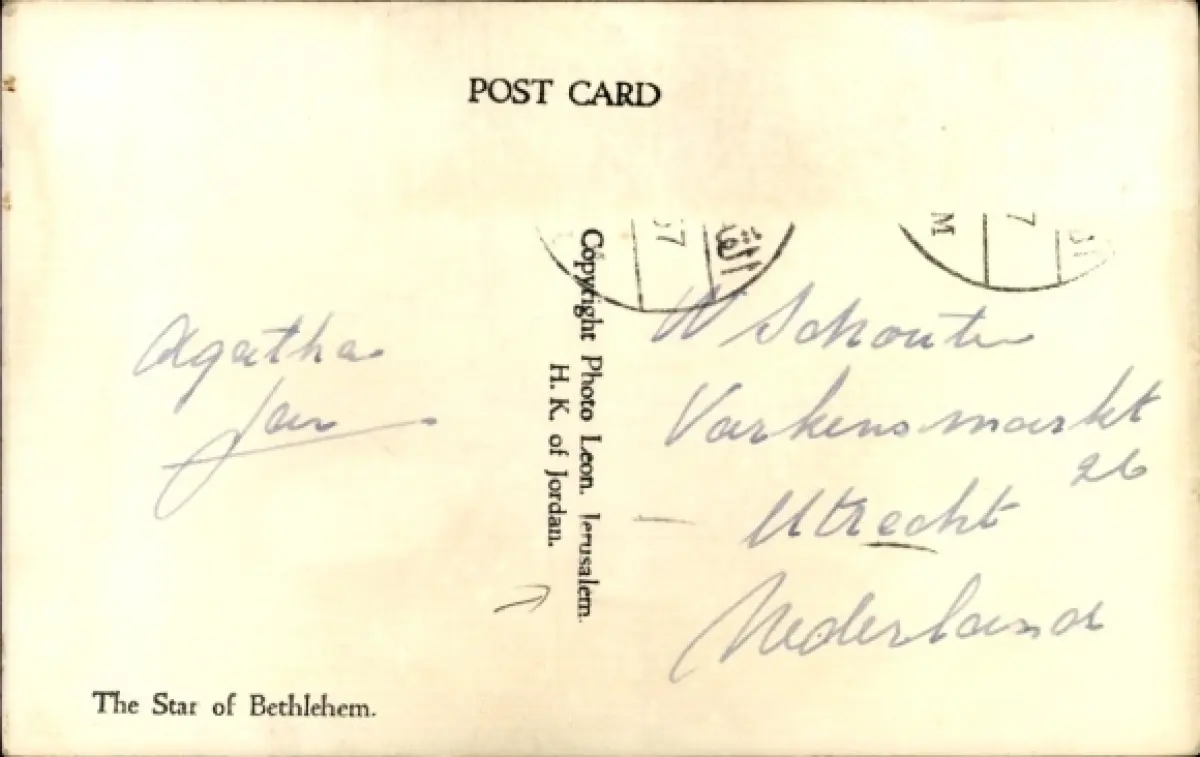 POST CARD
57
M
7
Copyright Photo Leon. Jerusalem.
H. K. of Jordan.
Agatha
Jan
W Schouten
Varkensmarkt
26
Utrecht
Nederland
The Star of Bethlehem.